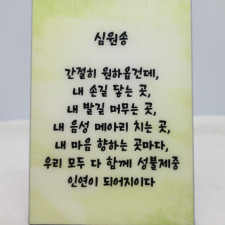 심원송
간절히 원하옵건데,
내 손길 닿는 곳,
내 발길 머무는 곳,
내 음성 메아리 치는 곳,
내 마음 향하는 곳마다,
우리 모두 다 함께 성불제중
인연이 되어지이다